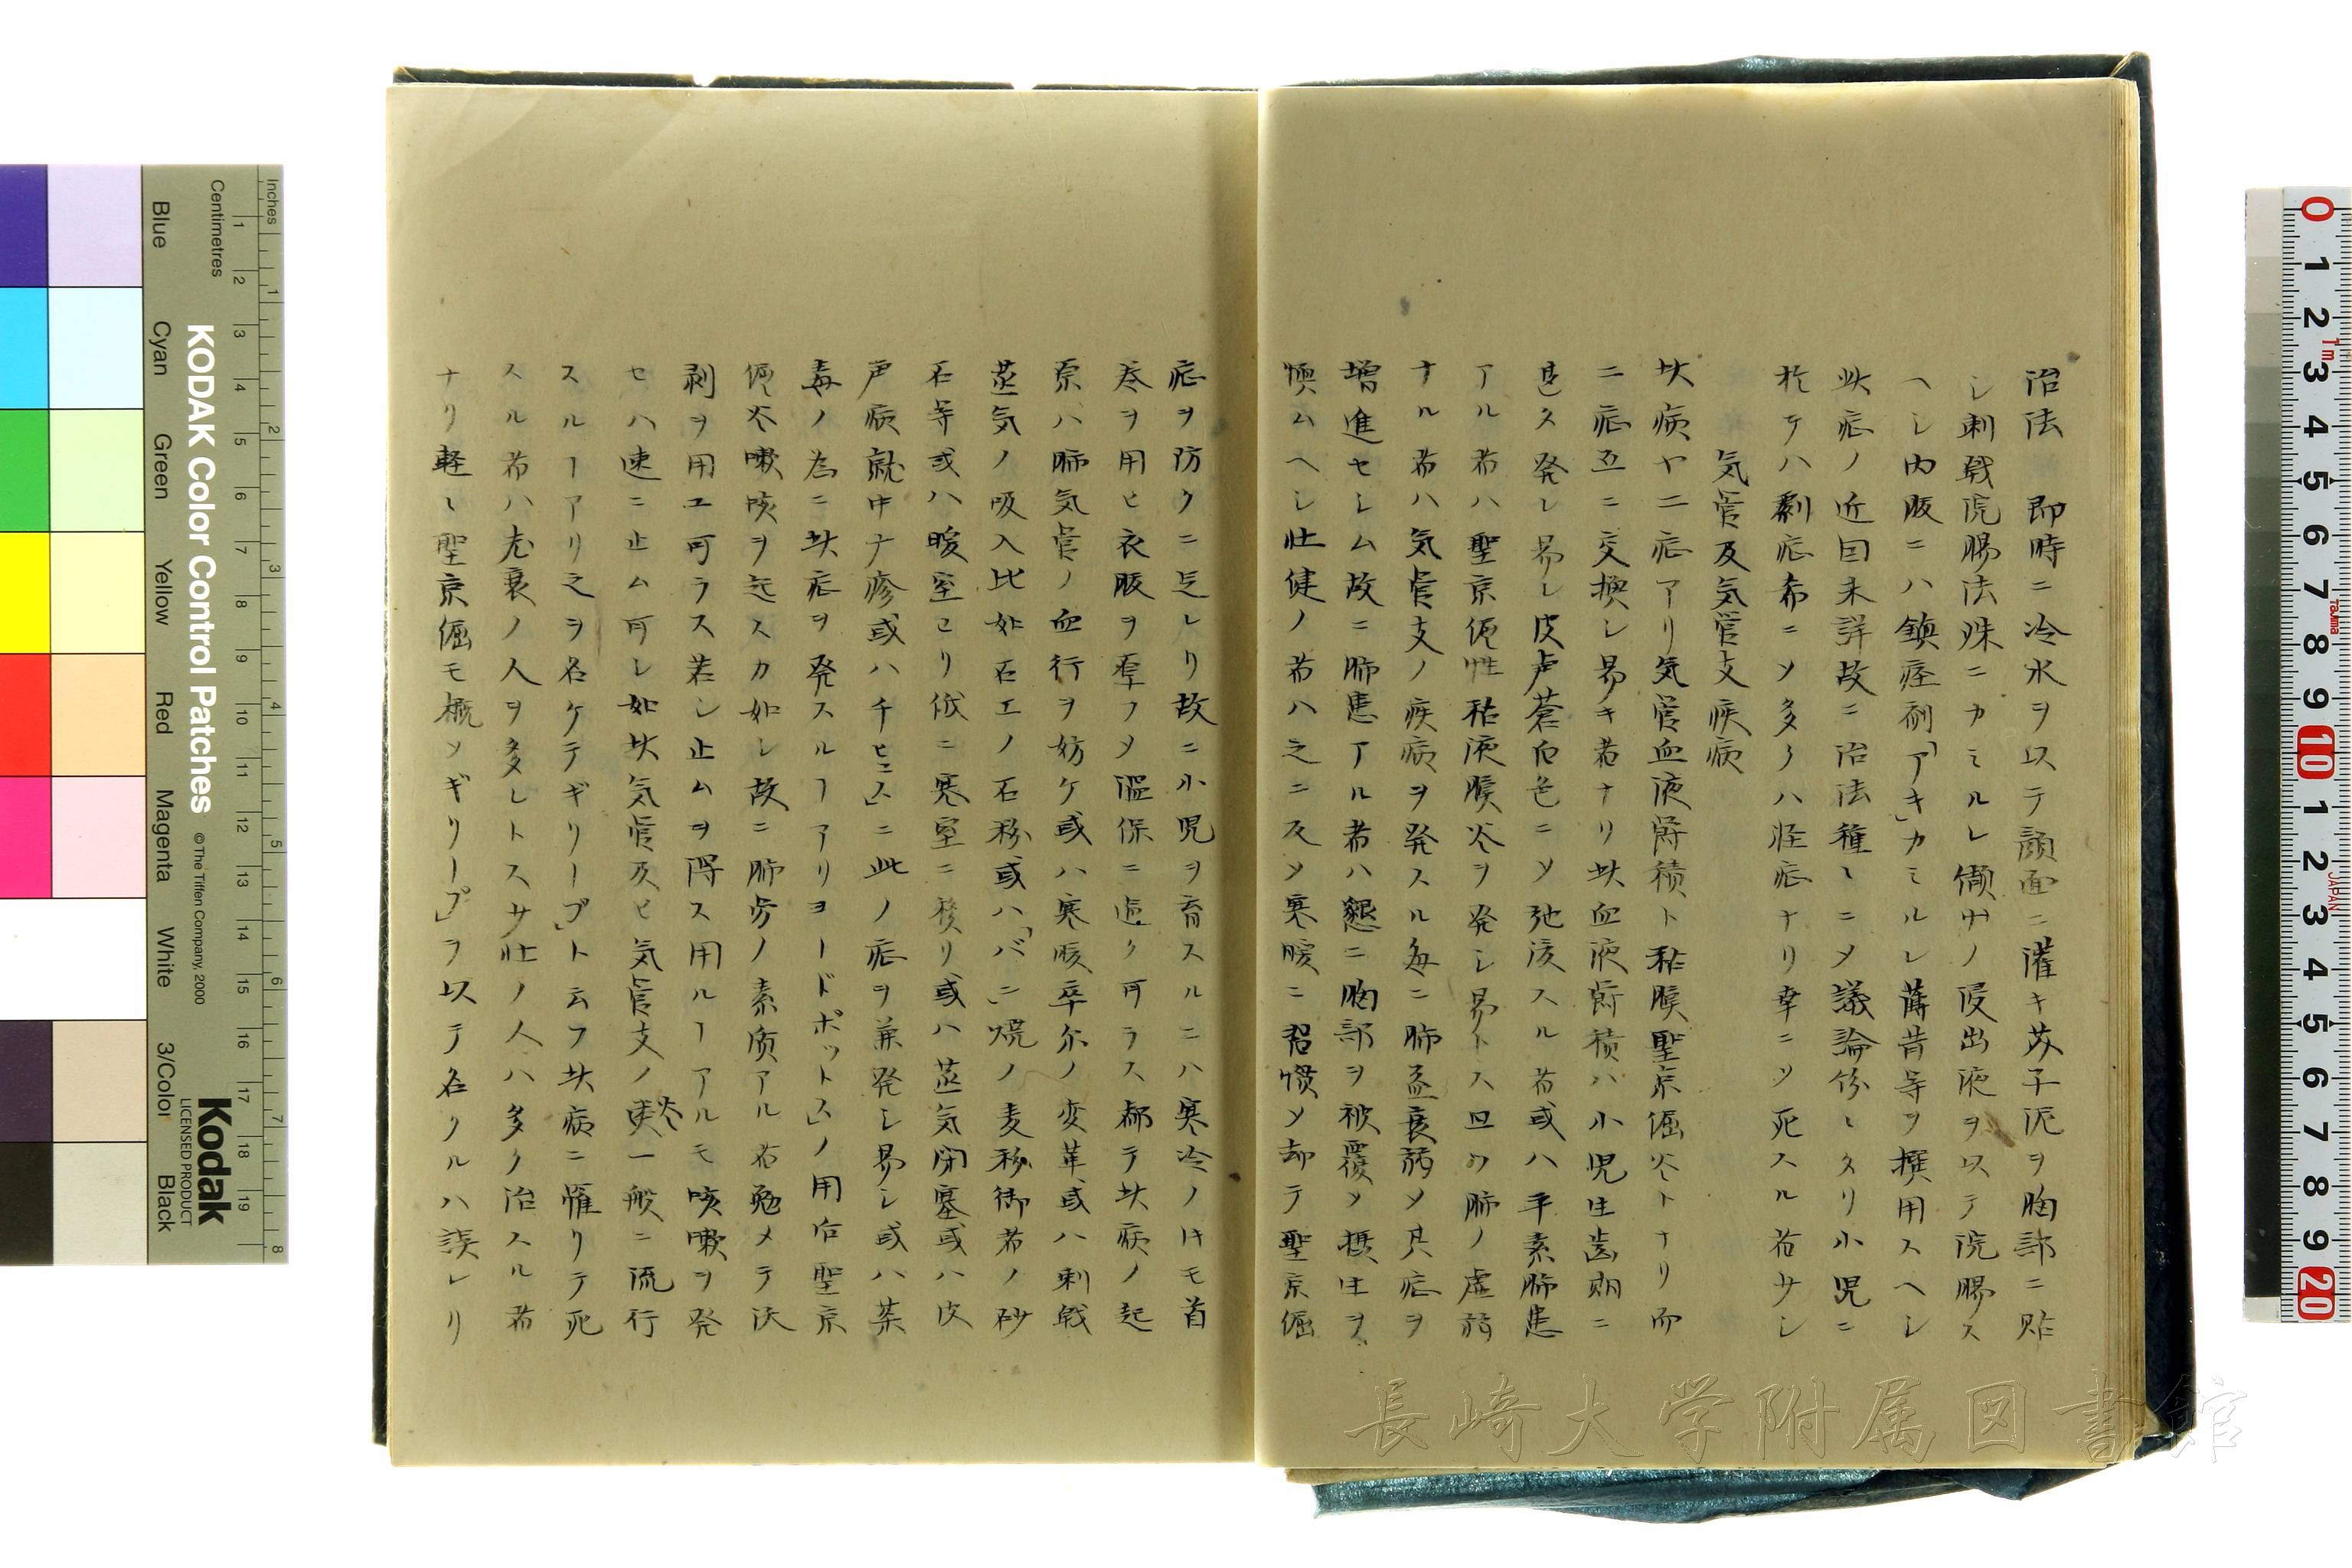 治法　即時ニ冷水ヲ以テ顔面ニ灌キ芥子泥ヲ胸部ニ貼
シ刺戟浣腸法殊ニカミルレ纈草ノ浸出液ヲ以テ浣腸ス
ヘシ内服ニハ鎮痙剤「アギ」カミルレ蒲昔等ヲ撰用スヘシ
此症ノ近因未詳故ニ治法種々ニメ議論紛々タリ小児ニ
於テハ劇症希ニソ多クハ怪症ナリ幸ニソ死スル者サシ
気管及気管支疾病
此病ヤ二症アリ気管血液欝積ト粘膜聖京倔炎トナリ而
ニ症互ニ交換シ易キ者ナリ此血液欝積ハ小児生歯期ニ
達ス発シ易シ皮膚蒼白色ニソ弛緩スル者或ハ平素肺患
アル者ハ聖京倔性粘液膜炎ヲ発シ易トス且ツ肺ノ虚弱
ナル者ハ気管支ノ疾病ヲ発スル毎ニ肺益衰弱ソ其症ヲ
増進セシム故ニ肺患アル者ハ懇ニ胸部ヲ被覆ソ摂生ヲ
慎ムヘシ壮健ノ者ハ之ニ反ソ寒暖ニ習慣ソ却テ聖京倔
症ヲ防クニ足レリ故ニ小児ヲ育スルニハ寒冷ノ時モ首
巻ヲ用ヒ衣服ヲ厚フソ温保ニ過ク可ラス都テ此病ノ起
原ハ肺気管ノ血行ヲ妨ケ或ハ寒暖卒尓ノ変革或ハ刺戟
蒸気ノ吸入比如石工ノ石粉或ハ「パン」焼ノ麦粉御者ノ砂
石等或ハ暖室ヨリ俄ニ寒室ニ移リ或ハ蒸気閉塞或ハ皮
膚病就中ナ疹或ハ「チヒュス」ニ此ノ症ヲ兼発シ易シ或ハ薬
毒ノ為ニ此症ヲ発スルヿアリ「ヨードポットス」ノ用后聖京
倔炎嗽咳ヲ起スカ如シ故ニ肺労ノ素質アル者勉メテ沃
剥ヲ用ユ可ラス若シ止ムヲ得ス用ルヿアルモ咳嗽ヲ発
セハ速ニ止ム可シ如此気管及ヒ気管支ノ炎一般ニ流行
スルヿアリ之ヲ名ケテ「ギリープ」ト云フ此病ニ罹リテ死
スル者ハ老衰ノ人ヲ多シトス少壮ノ人ハ多ク治スル者
ナリ軽々聖京倔モ概ソ「ギリープ」ヲ以テ名クルハ誤レリ
長崎大学附属図書館
Inches
Centimetres
KODAK Color Control Patches
© The Tiffen Company, 2000
Kodak
LICENSED PRODUCT
Blue
Cyan
Green
Yellow
Red
Magenta
White
3/Color
Black
1m
Tajima
JAPAN